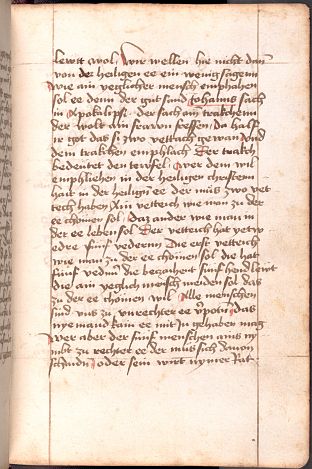 lewt wol · Wir wellen hie nicht dan
von der heiligen ee ein wenig sagenn
wie ain yeglicher mensch emphahen
sol ee denn der gut sand Johanns sach
in Apokalipsi · der sach ain trakchenn
der wolt ein frawen fressen · da half
ir got das si zwo vettach gewan vnd
dem trakchen emphlach · Der trakch
bedeutet den tewfel · wer dem wil
emphliehen in der heiligen christenn
hait in der heiligen ee der mus zwo vet
tech haben ain vettech wie man zu der
ee chomen sol · daz ander wie man in
der ee leben sol · Der vettech hat yetw
edre fünf vedernn · Die erst vettech
wie man zu der ee chomen sol die hat
fünf vedern die bezaihent fünf hend lewt
die ain yeglich mensch meiden sol das
zu der ee chomen wil · Alle menschen
sind vns zu vnrechter ee verpoten das
nyemand kain ee mit in gehaben mag
wer aber der fünf menschen ains ny
mbt zu rechter ee der mus sich dauon
schaiden oder sein wirt nymer Rat